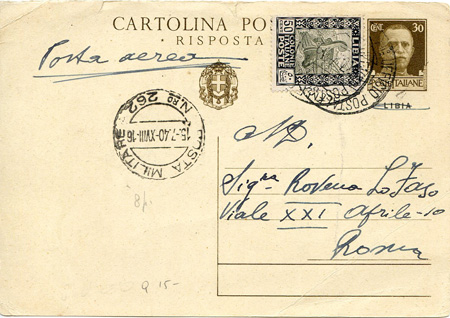 CARTOLINA POS
RISPOSTA
Posta aerea
50
LIBIA
POSTE
30
ITALIANE
LIBIA
POSTA MILITARE
N.RO 262
15-7.40-XVIII-16
Sig.ra Rovena Lo Faso
Viale XXI Aprile-10
Roma
Q 15-